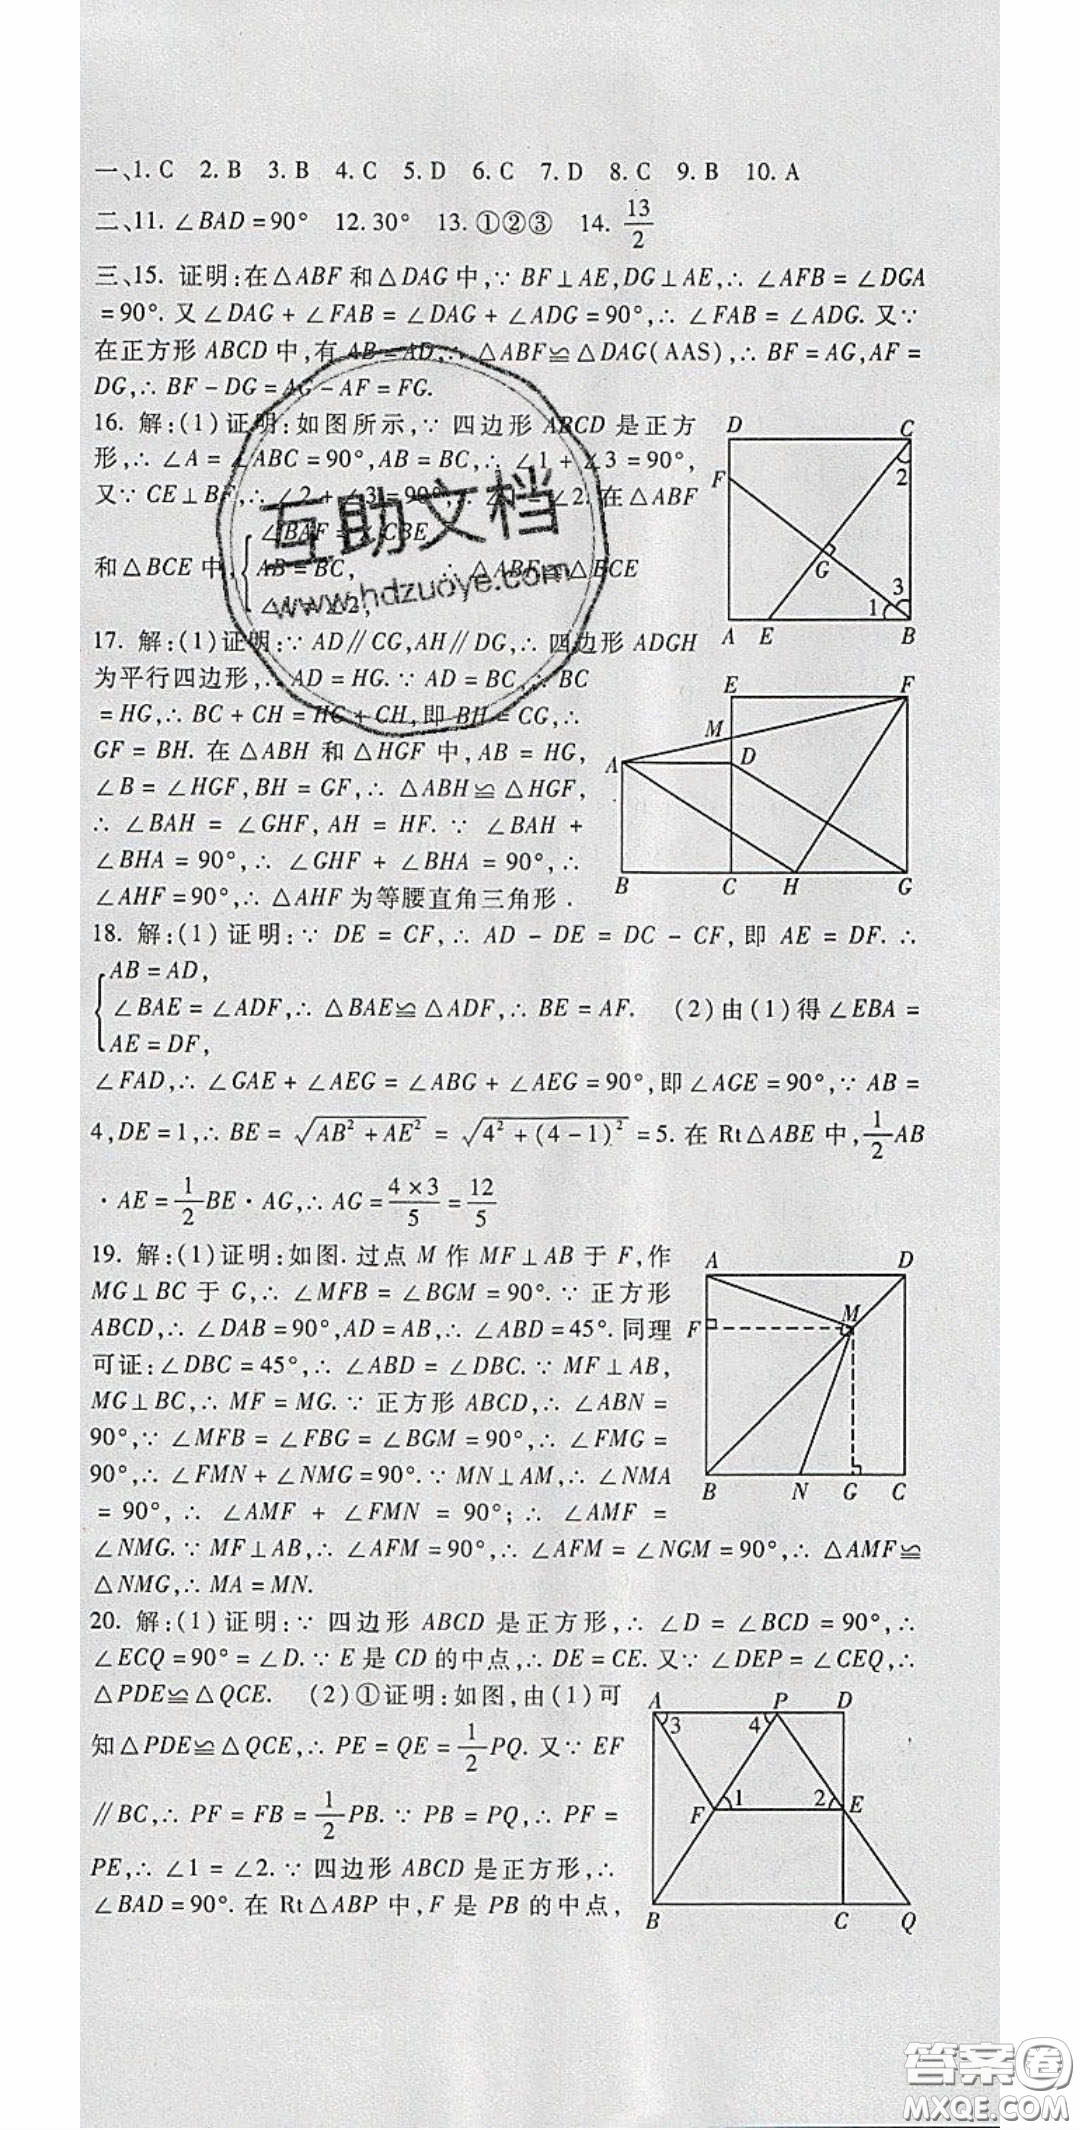 一、1. C 2. B 3. B 4. C 5. D 6. C 7. D 8. C 9. B 10. A
二、11. ∠BAD=90° 12. 30° 13. ①②③ 14. 13/2
三、15. 证明:在△ABF和△DAG中,∵ BF⊥AE,DG⊥AE,∴ ∠AFB=∠DGA
=90°. 又∠DAG+∠FAB=∠DAG+∠ADG=90°,∴ ∠FAB=∠ADG. 又∵
在正方形ABCD中,有AB=AD,∴ △ABF≌△DAG(AAS),∴ BF=AG,AF=
DG,∴ BF-DG=AG-AF=FG.
16. 解:(1)证明:如图所示,∵ 四边形ABCD是正方
形,∴ ∠A=∠ABC=90°,AB=BC,∴ ∠1+∠3=90°,
又∵ CE⊥BF,∴ ∠2+∠3=90°,∴ ∠1=∠2. 在△ABF
∠BAF=∠CBE
和△BCE中, AB=BC, ∴ △ABF≌△BCE
∠1=∠2,
D C F 2 G 3 1 A E B
17. 解:(1)证明:∵ AD∥CG,AH∥DG,∴ 四边形ADGH
为平行四边形,∴ AD=HG. ∵ AD=BC,∴ BC
=HG,∴ BC+CH=HG+CH,即BH=CG,∴
GF=BH. 在△ABH和△HGF中,AB=HG,
∠B=∠HGF,BH=GF,∴ △ABH≌△HGF,
∴ ∠BAH=∠GHF,AH=HF. ∵ ∠BAH+
∠BHA=90°,∴ ∠GHF+∠BHA=90°,∴
∠AHF=90°,∴ △AHF为等腰直角三角形.
E F M A D B C H G
18. 解:(1)证明:∵ DE=CF,∴ AD-DE=DC-CF,即AE=DF. ∴
AB=AD,
∠BAE=∠ADF,∴ △BAE≌△ADF,∴ BE=AF. (2)由(1)得∠EBA=
AE=DF,
∠FAD,∴ ∠GAE+∠AEG=∠ABG+∠AEG=90°,即∠AGE=90°,∵ AB=
4,DE=1,∴ BE=√(AB²+AE²)=√(4²+(4-1)²)=5. 在Rt△ABE中,1/2AB
·AE=1/2BE·AG,∴ AG=4×3/5=12/5
19. 解:(1)证明:如图. 过点M作MF⊥AB于F,作
MG⊥BC于G,∴ ∠MFB=∠BGM=90°. ∵ 正方形
ABCD,∴ ∠DAB=90°,AD=AB,∴ ∠ABD=45°. 同理
可证:∠DBC=45°,∴ ∠ABD=∠DBC. ∵ MF⊥AB,
MG⊥BC,∴ MF=MG. ∵ 正方形ABCD,∴ ∠ABN=
90°,∵ ∠MFB=∠FBG=∠BGM=90°,∴ ∠FMG=
90°,∴ ∠FMN+∠NMG=90°. ∵ MN⊥AM,∴ ∠NMA
=90°,∴ ∠AMF+∠FMN=90°;∴ ∠AMF=
∠NMG. ∵ MF⊥AB,∴ ∠AFM=90°,∴ ∠AFM=∠NGM=90°,∴ △AMF≌
△NMG,∴ MA=MN.
A D F M B N G C
20. 解:(1)证明:∵ 四边形ABCD是正方形,∴ ∠D=∠BCD=90°,∴
∠ECQ=90°=∠D. ∵ E是CD的中点,∴ DE=CE. 又∵ ∠DEP=∠CEQ,∴
△PDE≌△QCE. (2)①证明:如图,由(1)可
知△PDE≌△QCE,∴ PE=QE=1/2PQ. 又∵ EF
∥BC,∴ PF=FB=1/2PB. ∵ PB=PQ,∴ PF=
PE,∴ ∠1=∠2. ∵ 四边形ABCD是正方形,∴
∠BAD=90°. 在Rt△ABP中,F是PB的中点,
A P D 3 4 F 1 2 E B C Q
互助文档
www.hdzuoye.com
答案圈
MXQE.COM